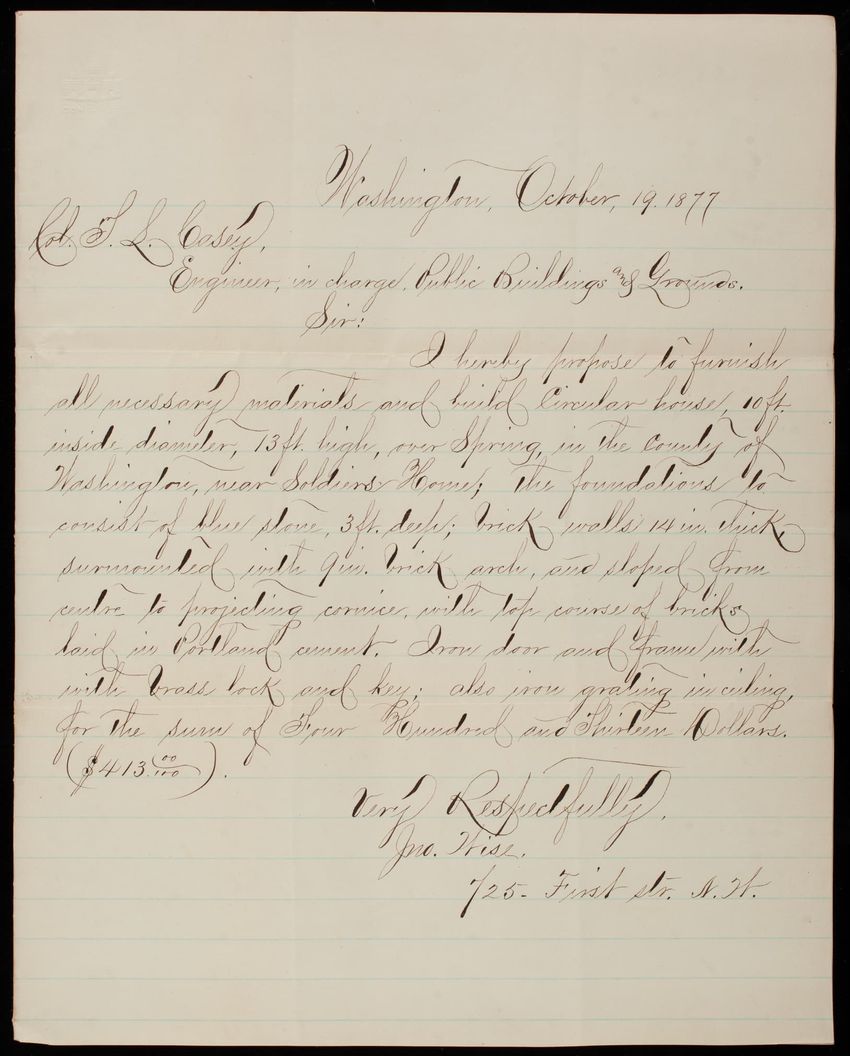 Washington, October, 19. 1877
Col. T. L. Casey,
Engineer, in charge, Public Buildings and Grounds.
Sir:
I hereby propose to furnish
all necessary materials and build Circular house, 10 ft.
inside diameter, 13 ft. high, over Spring, in the County of
Washington, near Soldiers Home; the foundations to
consist of blue stone, 3 ft. deep; brick walls 14 in. thick,
surmounted with 9 in. brick arch, and sloped from
centre to projecting cornice, with top course of bricks
laid in Portland cement. Iron door and frame with
with brass lock and key; also iron grating in ceiling,
for the sum of Four Hundred and Thirteen Dollars.
($413.00/100).
Very Respectfully,
Jno. Wise.
725- First str. N. W.